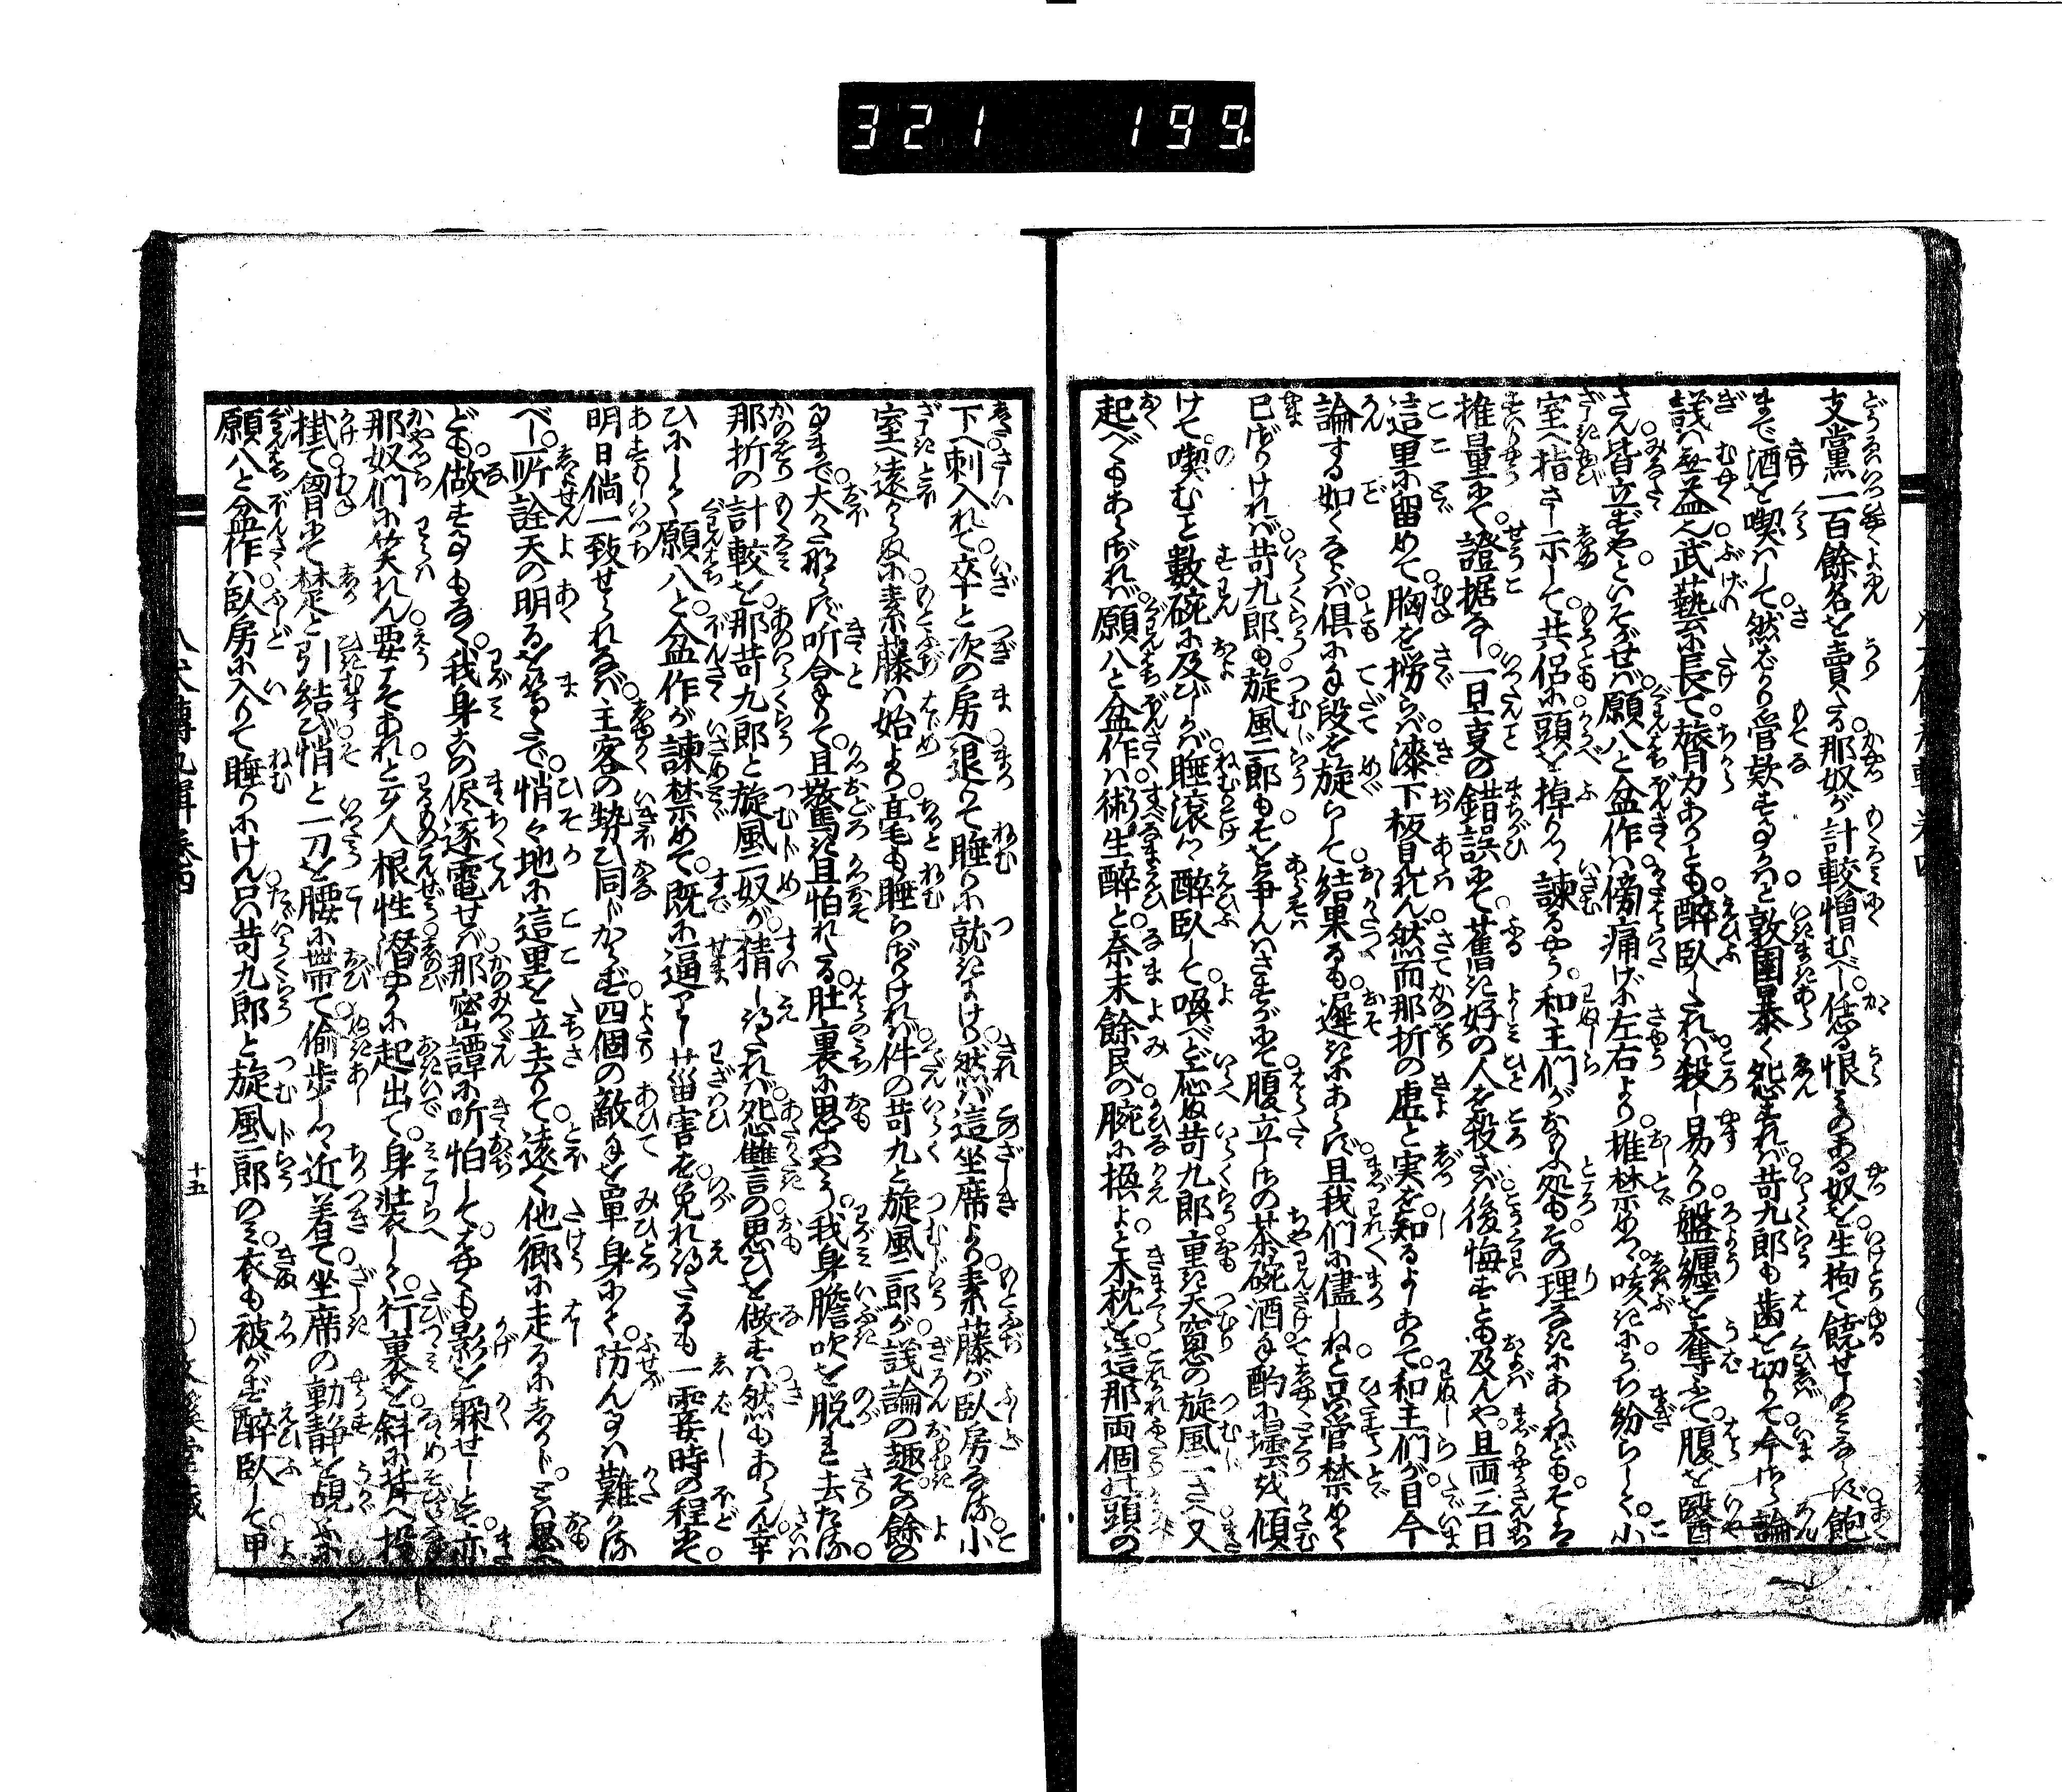 321 199.
支黨一百餘名を賣たる那奴が計較憎むべし恁る恨のある奴を生拘て饒せしのみならず飽
まで酒を喫はして然ばかり管欵するかはと敦圉暴く怨ずれば苛九郎も歯を切りて今さら論
議は無益也武藝に長て膂力ありとも醉臥したれば殺し易かり盤纏を奪ふて腹を醫
さん皆立ずやといそがせば願八と盆作は傍痛げに左右より推禁めつゝ咳きにうち紛らしく小
室へ指さし示して共侶に頭を掉りつゝ諫るやう和主們がおもふ処もその理なきにあらねどもそは
推量にて證据なし一旦叓の錯誤にて舊き好の人を殺さば後悔すとも及んや且両三日
這里に留めて胸を撈らば漆下板見れん然而那折の虚と実を知るよしありて和主們が目今
論する如くならば倶に手段を旋らして結果るも遅きにあらず且我們に儘しねと只管禁めて
已ざりければ苛九郎も旋風二郎もそを争んはさすがにて腹立しさの茶碗酒手酌に壜を傾
けて喫むこと數碗に及びしかば睡滾つゝ醉臥して喚べど應ぬ苛九郎重き天窓の旋風二さへ又
起べくもあらざれば願八と盆作は術生醉と奈末餘民の腕に換よと木枕を這那両個の頭の
下へ刺入れて卒と次の房へ退りて睡りに就きにけり然ば這坐席より素藤が臥房なる小
室へ遠からぬに素藤は始より毫も睡らざりければ件の苛九と旋風二郎が議論の趣その餘の
事まで大かたならず听合して且驚き且怕れたる肚裏に思ふやう我身膽吹を脱れ去たる
那折の計較を那苛九郎と旋風二奴が猜し得たれば怨讐言の思ひを做すは然もあらん幸
ひにして願八と盆作が諫禁めて既に逼りし菑害を免れ得たるも一霎時の程ぞ
明日倘一致せられなば主客の勢ひ同じからず四個の敵手を單身にて防ん事は難かる
べし所詮天の明るを等たで悄々地に這里を立去りて遠く他郷に走るにしかじとは思へ
ども做すよしもなく我身この侭逐電せば那密譚に听怕してはやくも影を躱せしとて亦
那奴們に笑れん要こそあれと歹人根性潜やかに起出て身装しく行裹を斜に背へ投
掛て胷にて楚と引結び悄と一刀を腰に帶て偷歩しつゝ近着て坐席の動静を覘ふに
願八と盆作は臥房に入りて睡りにけん只苛九郎と旋風二郎のミ衣も被がず醉臥して甲
八犬傳九輯卷四
十五